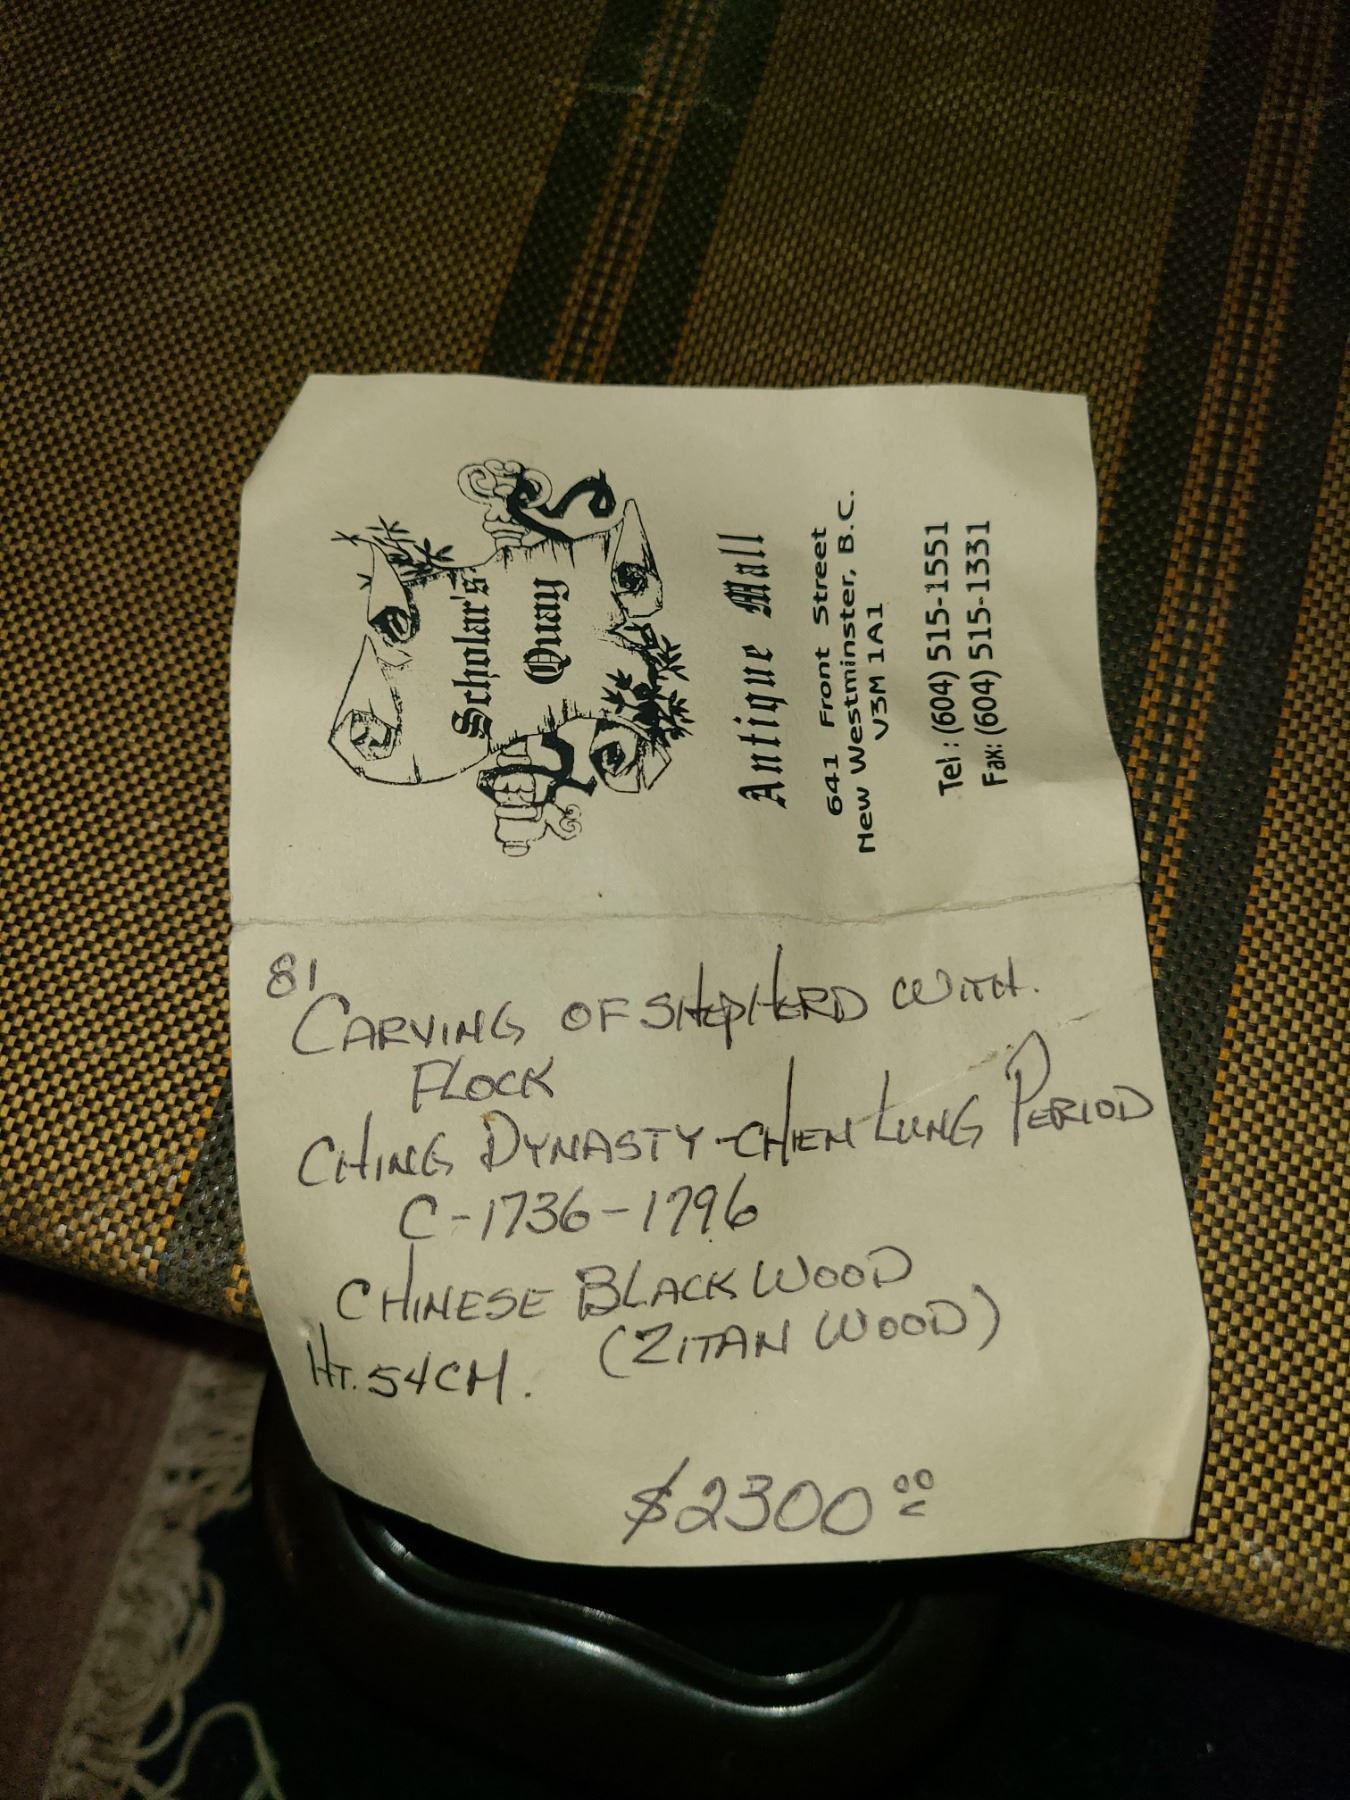 Scholar's
Quay
Antique Mall
641 Front Street
New Westminster, B.C.
V3M 1A1
Tel : (604) 515-1551
Fax: (604) 515-1331
81
CARVING OF SHEPHERD WITH.
FLOCK
CHING DYNASTY-CHIEN LUNG PERIOD
C-1736-1796
CHINESE BLACK WOOD
(ZITAN WOOD)
HT. 54CM.
$2300.00